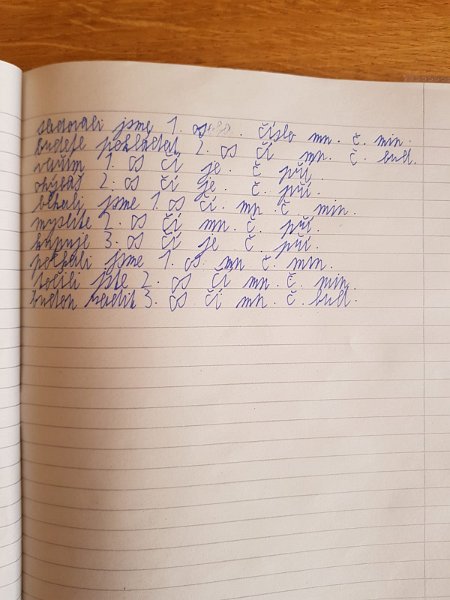 sledovali jsme 1. os. číslo mn. č. min.
budete pokládat 2. os čí mn. č. bud.
vařím 1. os čí je. č. pří.
ohýbáš 2. os čí je. č. pří.
jsme 1 os čí. mn. č min.
myslíte 2. os čí mn. č. pří.
kupuje 3. os čí je č. pří.
potkali jsme 1. os. mn č. min.
točili jste 2. os. čí mn. č. min.
budou sedit 3. os. čí mn. č. bud.